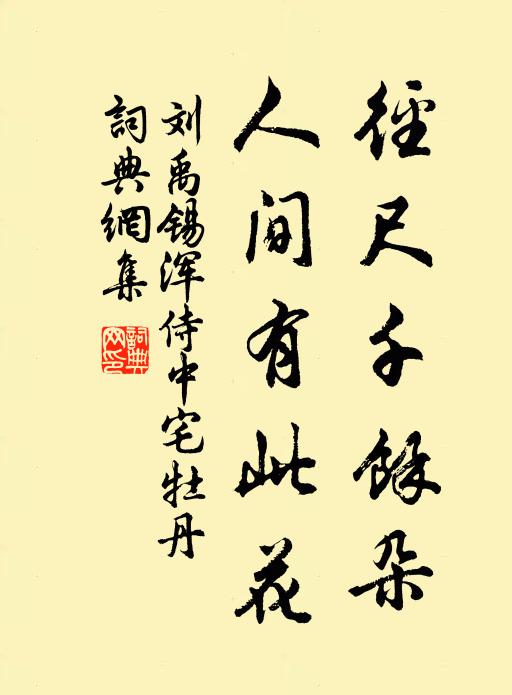 徑尺千餘朵
人間有此花
刘禹錫浑侍中宅牡丹
詞典網集
詞典網印